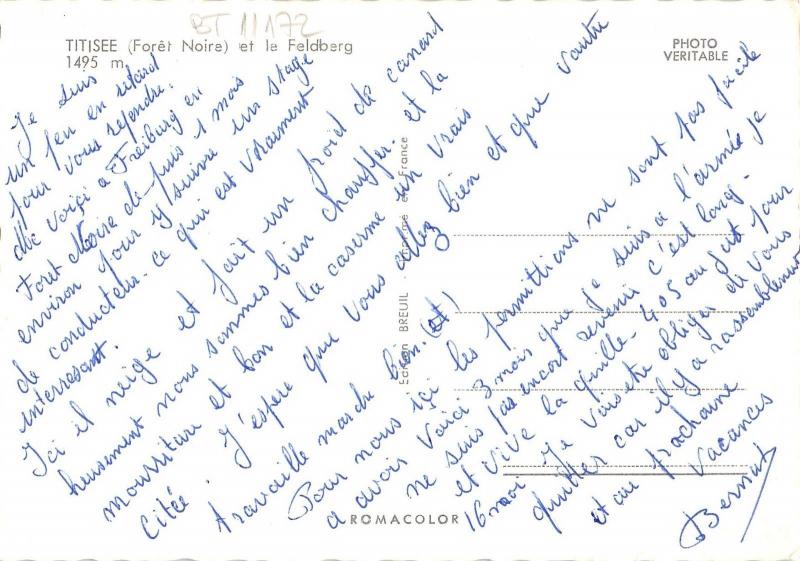 BT 11172
TITISEE (Forêt Noire) et le Feldberg
1495 m.
PHOTO
VERITABLE
Je suis
un peu en retard
pour vous repondre.
Voiçi a Freiburg en
Foret Noire depuis 1 mois
environ pour y suivre un stage
de conducteur. Ce qui est vraiment
interressant.
Ici il neige et fait un froid de canard
heusement nous sommes bien chauffer. et la
nourriture et bon et la caserne un vrais
Citée. J'espere que vous allez bien et que vautre
travaille marche bien. (et)
Pour nous içi les permitions ne sont pas facile
a avoir voiçi 3 mois que je suis a l'armée je
ne suis pas encort revenu c'est long.
et vive la quille. 405 au jut pour
16 moi. Je vais etre obliger de vous
quitter car il y a rassemblement
et au prochaine
vacances
Bernard
Edition BREUIL
en France
ROMACOLOR